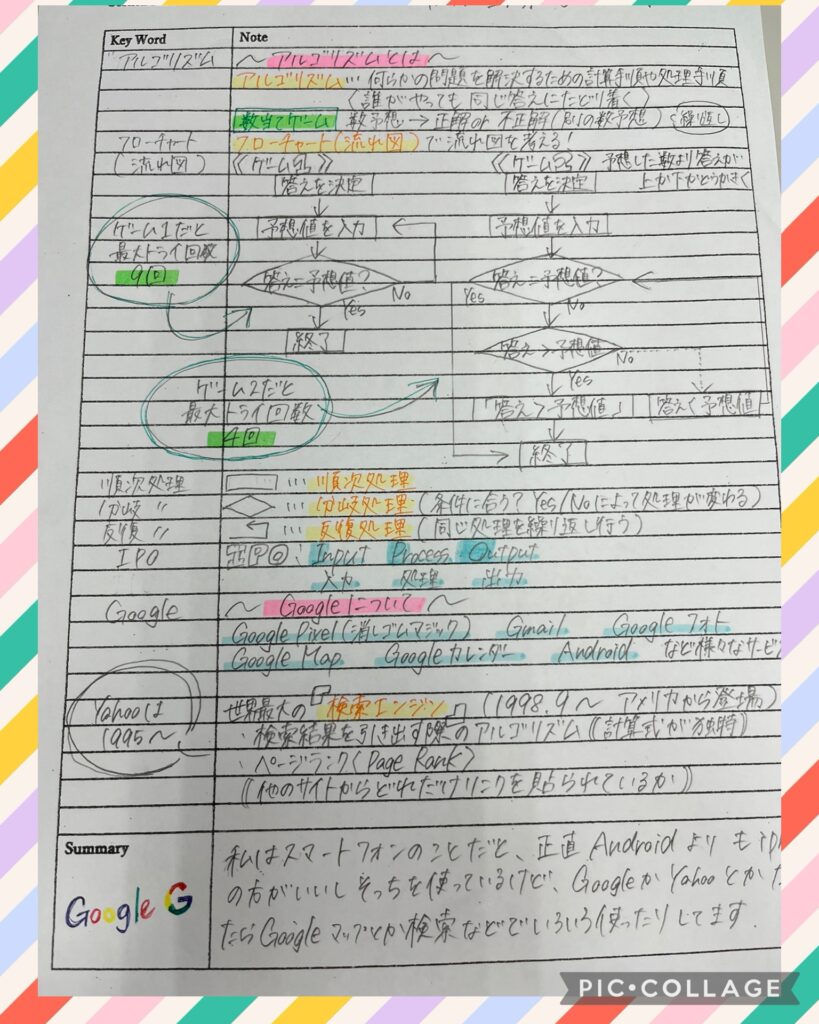 Key Word Note
アルゴリズム ～アルゴリズムとは～
アルゴリズム… 何らかの問題を解決するための計算手順や処理手順
(誰がやっても同じ答えにたどり着く)
数当てゲーム 数予想→正解or不正解(別の数予想) 繰り返し
フローチャート フローチャート(流れ図)で流れ図を考える!
(流れ図) 《ゲーム1》 《ゲーム2》 予想した数より答えが
答えを決定 答えを決定 上か下かどうかきく
ゲーム1だと 予想値を入力 予想値を入力
最大トライ回数
9回 答え=予想値? 答え=予想値?
Yes No Yes No
終了 答え>予想値 No
ゲーム2だと Yes
最大トライ回数 「答え>予想値」 答え<予想値
4回 終了
順次処理 … 順次処理
分岐 〃 … 分岐処理 (条件に合う? Yes/Noによって処理が変わる)
反復 〃 … 反復処理 (同じ処理を繰り返し行う)
IPO : Input Process Output
入力 処理 出力
Google ～Googleについて～
Google Pixel(消しゴムマジック) Gmail Google フォト
Google Map Google カレンダー Android など様々なサービ
Yahooは 世界最大の『検索エンジン』 (1998.9～ アメリカから登場)
1995～ ・検索結果を引き出す際のアルゴリズム((計算式が独特)
・ページランク(Page Rank)
((他のサイトからどれだけリンクを貼られているか))
Summary 私はスマートフォンのことだと、正直 Android よりも iPh
Google G の方がいいしそっちを使っているけど、GoogleかYahooとかだ
たらGoogle マップとか検索などでいろいろ使ったりしてます.
PIC•COLLAGE